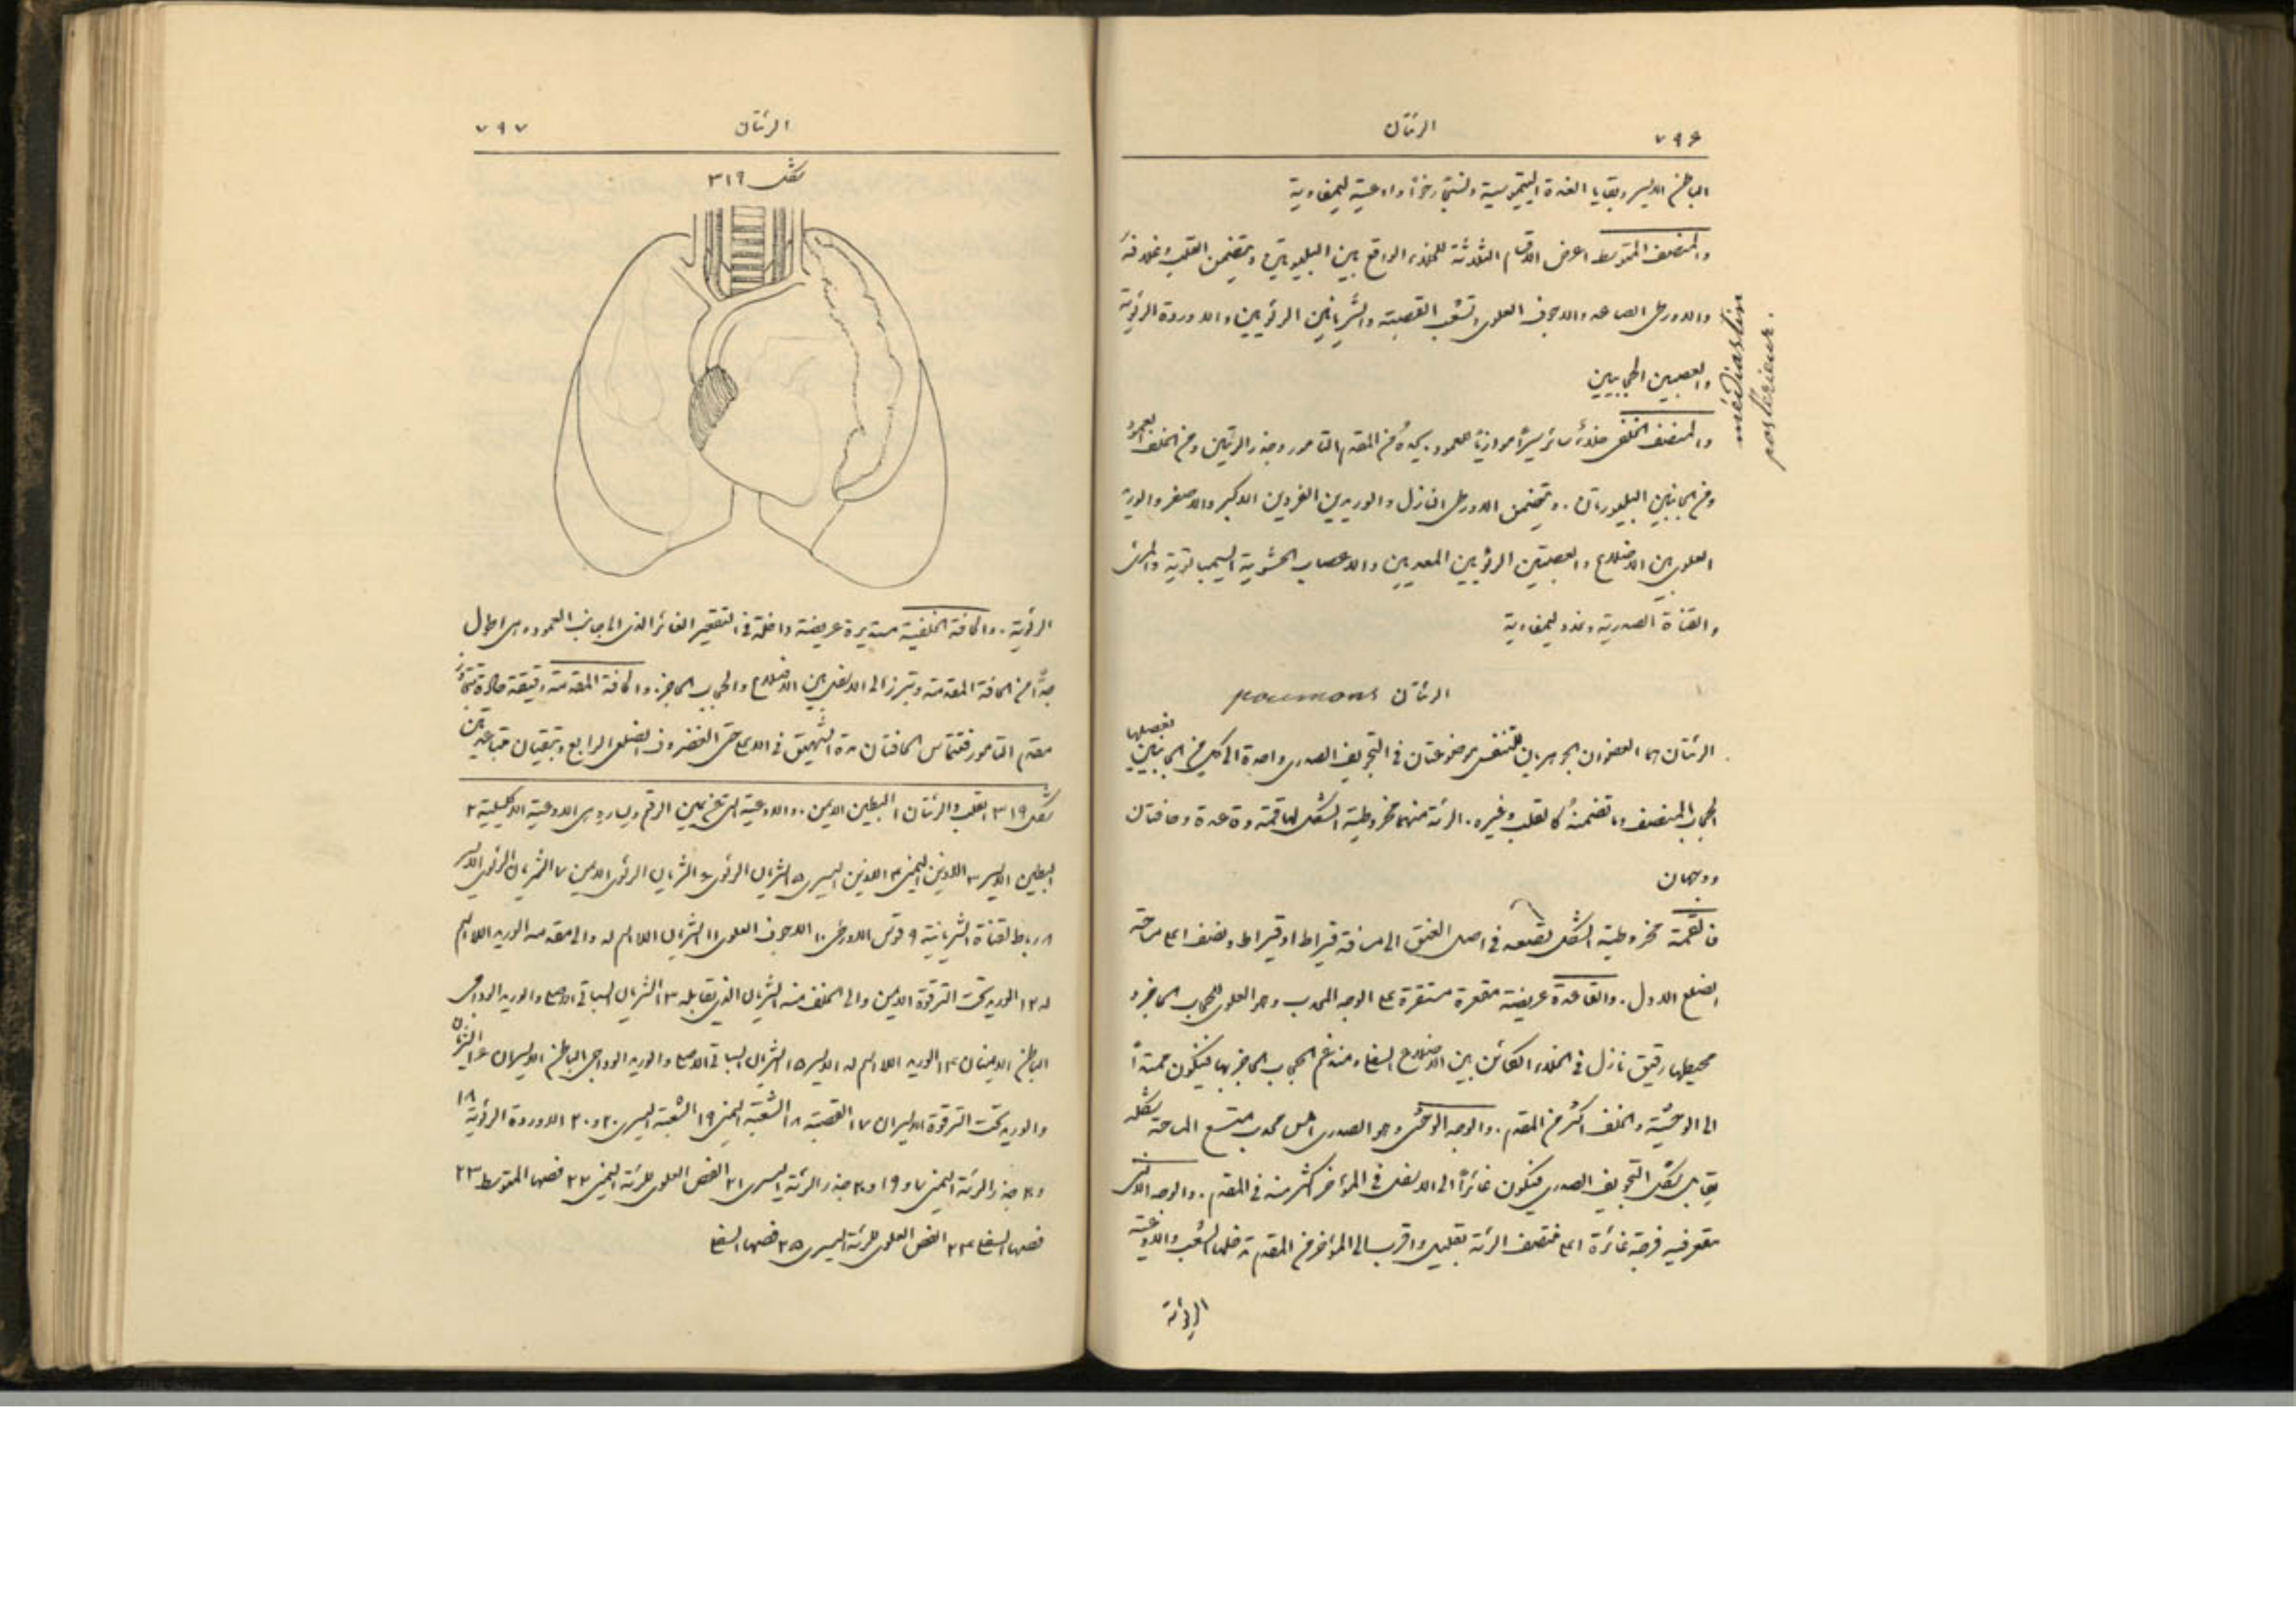 ٧٩٦ الرئتان
الباطن الايسر وبقايا الغدة الثيموسية ونسيجًا رخوًا واوعية ليمفاوية
والمنصف المتوسط اعرض الاقسام الثلاثة للخلاء الواقع بين البليورتين ويتضمن القلب وغلافهُ
والاورطى الصاعد والاجوف العلوى وتشعب القصبة والشريانين الرئويين والاوردة الرئوية
والعصبين الحجابيين
والمنصف الخلفى خلاء سائر سيرًا موازيًا للعمود يحدهُ من المقدم التامور وجذر الرئتين ومن الخلف العمود
ومن الجانبين البليورتان. ويتضمن الاورطى النازل والوريدين الفردين الاكبر والاصغر والاوردة
العلوى بين الاضلاع والعصبين الرئويين المعديين والاعصاب الحشوية السيمباتوية والمرئ
والقناة الصدرية وغدد ليمفاوية
médiastin
postérieur.
الرئتان poumons
الرئتان هما العضوان الجوهريان للتنفس موضوعتان فى التجويف الصدرى واحدة الى كل من الجانبين يفصلهما
الحجاب المنصف وما تضمنهُ كالقلب وغيره. الرئة منهما مخروطية الشكل لها قمة وقاعدة وحافتان
ووجهان
فالقمة مخروطية الشكل تصعد فى اصل العنق الى مسافة قيراط او قيراط ونصف اعلى ساحة
الضلع الاول. والقاعدة عريضة مقعرة مستقرة على الوجه المحدب وهو العلوى للحجاب الحاجز و
محيطها رقيق نازل فى الخلاء الكائن بين الاضلاع السفلى ومندغم الحجاب الحاجز بها فيكون ممتدًا
الى الوحشية والخلف اكثر من المقدم. والوجه الوحشى وهو الصدرى املس محدب متسع المساحة شكله
يقابل شكل التجويف الصدرى فيكون غائرًا الى الاسفل فى المؤخر اكثر منه فى المقدم. والوجه الانسى
مقعر فيه فرجة غائرة اعلى منتصف الرئة بقليل واقرب الى المؤخر من المقدم تدخلها الشعب والاوعية
الرئوية
الرئتان ٧٩٧
شكل ٣١٩
الرئوية. والحافة الخلفية مستديرة عريضة داخلة فى التقعير الغائر الذى الى جانب العمود وهى اطول
جدًّا من الحافة المقدمة وتبرز الى الاسفل بين الاضلاع والحجاب الحاجز. والحافة المقدمة رقيقة حادة تتجاوز
مقدم التامور فتتماس الحافتان مدة الشهيق فى الاعلى حتى الغضروف الضلعى الرابع وتبقيان متباعدتين
شكل ٣١٩ القلب والرئتان ١ البطين الايمن. والاوعية التى عن يمين الرقم ويساره هى الاوعية الاكليلية ٢
البطين الايسر ٣ الاذين اليمنى ٤ الاذين اليسرى ٥ الشريان الرئوى ٦ الشريان الرئوى الايمن ٧ الشريان الرئوى الايسر
٨ رباط القناة الشريانية ٩ قوس الاورطى ١٠ الاجوف العلوى ١١ الشريان اللااسم له والى مقدمه الوريد اللااسم
له ١٢ الوريد تحت الترقوة الايمن والى الخلف منه الشريان الذى يقابله ١٣ الشريان السباتى الاصلى والوريد الوداجى
الباطن الايمنان ١٤ الوريد اللااسم له الايسر ١٥ الشريان السباتى الاصلى والوريد الوداجى الباطن الايسران ١٦ الشريان
والوريد تحت الترقوة الايسران ١٧ القصبة ١٨ الشعبة اليمنى ١٩ الشعبة اليسرى ٢٠ و٢٠ الاوردة الرئوية ١٨
و٢٠ جذر الرئة اليمنى ٧ و١٩ و٢٠ جذر الرئة اليسرى ٢١ الفص العلوى للرئة اليمنى ٢٢ فصها المتوسط ٢٣
فصها السفلى ٢٤ الفص العلوى للرئة اليسرى ٢٥ فصها السفلى